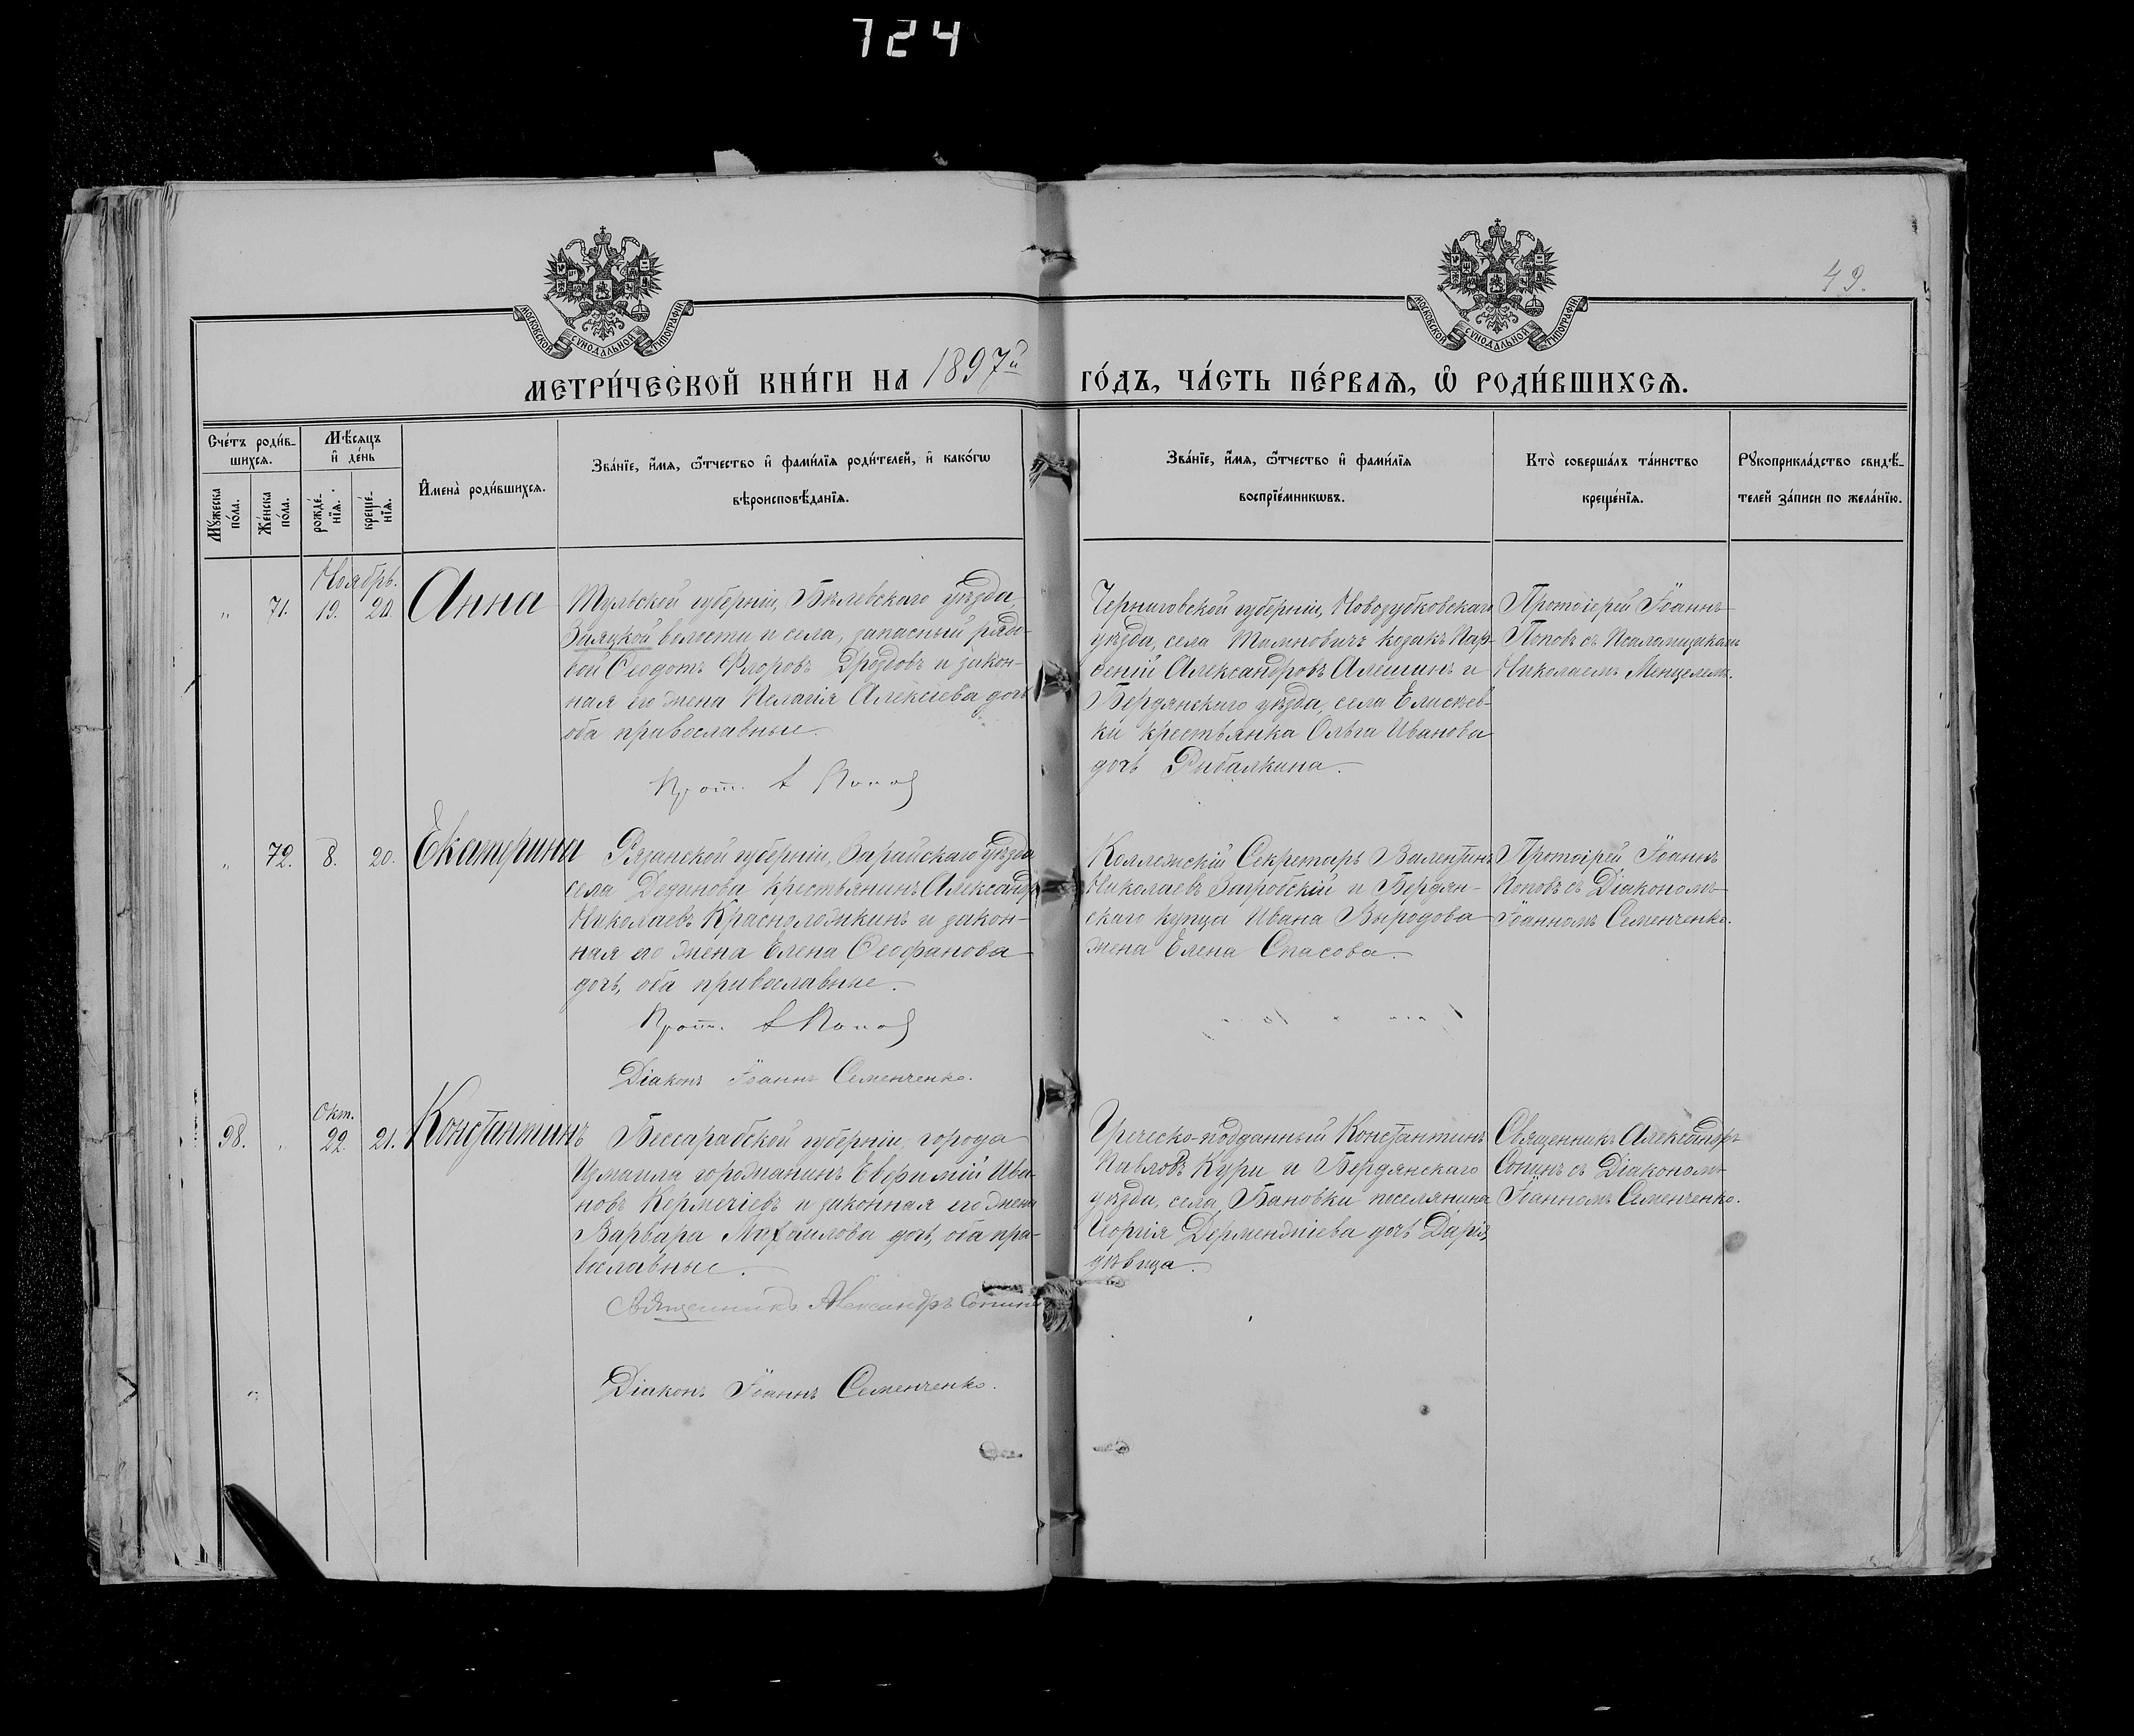 724
49.
МОСКОВСКОЙ СѴНОДАЛЬНОЙ ТИПОГРАФІИ
МОСКОВСКОЙ СѴНОДАЛЬНОЙ ТИПОГРАФІИ
МЕТРИ́ЧЕСКОЙ КНИ́ГИ НА 1897й ГО́ДЪ, ЧА́СТЬ ПЕ́РВАѦ, Ѡ҆ РОДИ́ВШИХСѦ.
Сче́тъ роди́в-
шихсѧ.
Мѣ́сяцъ
и҆ де́нь
Мꙋ́жеска по́ла.
Же́нска по́ла.
рожде́-нїѧ.
креще́-нїѧ.
И҆мена̀ роди́вшихсѧ.
Зва́нїе, и҆́мѧ, ѻ҆́тчество и҆ фами́лїѧ роди́телей, и҆ како́гѡ
вѣроисповѣ́данїѧ.
Зва́нїе, и҆́мѧ, ѻ҆́тчество и҆ фами́лїѧ
воспрїе́мникѡвъ.
Кто̀ соверша́лъ та́инство
креще́нїѧ.
Рꙋкоприкла́дство свидѣ́-
телей за́писи по жела́нїю.
Ноябрь.
„ 71. 19. 20. Анна
Тульской губерніи, Бѣлевскаго уѣзда,
волости и села, запасный рядо-
вой Ѳеодотъ Флоровъ Дроздовъ и закон-
ная его жена Пелагія Алексіева дочь
оба православные.
Прот. І Попов
Черниговской губерніи, Новозубковскаго
уѣзда, села козакъ Пар-
ѳеній Александровъ Алешинъ и
Бердянскаго уѣзда, села Елисѣев-
ки крестьянка Ольга Иванова
дочь Рибалкина.
Протоіерей Іоаннъ
Поповъ съ Псаломщикомъ
Николаемъ Менцелемъ.
„ 72. 8. 20. Екатерина
Рязанской губерніи, Зарайскаго уѣзда
села Дединова крестьянинъ Александръ
Николаевъ Красноложкинъ и закон-
ная его жена Елена Ѳеофанова
дочь, оба православные.
Прот. І Попов
Діаконъ Іоаннъ Семенченко.
Коллежскій Секретарь Валентинъ
Николаевъ Загробскій и Бердян-
скаго купца Ивана Выродова
жена Елена Спасова.
Протоірей Іоаннъ
Поповъ съ Діакономъ
Іоанномъ Семенченко.
Окт.
98. „ 22. 21. Константинъ
Бессарабской губерніи, города
Измаила горожанинъ Евфимій Ива-
новъ Кермечіевъ и законная его жена
Варвара Михаилова дочь, оба пра-
вославные.
Священникъ Александръ Сопинъ
Діаконъ Іоаннъ Семенченко.
Греческо-подданный Константинъ
Павловъ Кури и Бердянскаго
уѣзда, села Бановки поселянина
Георгія Дерменджіева дочь Дарія,
дѣвица.
Священникъ Александръ
Сопинъ съ Діакономъ
Іоанномъ Семенченко.